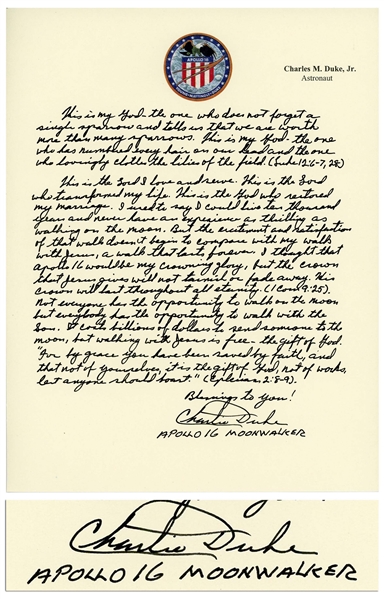 APOLLO 16
Charles M. Duke, Jr.
Astronaut
This is my God- the one who does not forget a
single sparrow and tells us that we are worth
more than many sparrows. This is my God- the one
who has numbered every hair on our head and the one
who lovingly clothes the lilies of the field (Luke 12:6-7, 28)
This is the Lord I love and serve. This is the Lord
who transformed my life. This is the God who restored
my marriage. I used to say I could live ten thousand
years and never have an experience as thrilling as
walking on the moon. But the excitement and satisfaction
of that walk doesn't begin to compare with my walk
with Jesus, a walk that lasts forever. I thought that
Apollo 16 would be my crowning glory, but the crown
that Jesus gives will not tarnish or fade away. His
crown will last throughout all eternity (1 Cor. 9:25).
Not everyone has the opportunity to walk on the moon
but everybody has the opportunity to walk with the
Son. It costs billions of dollars to send someone to the
moon, but walking with Jesus is free- the gift of God.
"For by grace you have been saved by faith, and
that not of yourselves, it is the gift of God, not of works,
lest anyone should boast." (Ephesians 2:8-9).
Blessings to you!
Charlie Duke
APOLLO 16 MOONWALKER
Charlie Duke
APOLLO 16 MOONWALKER